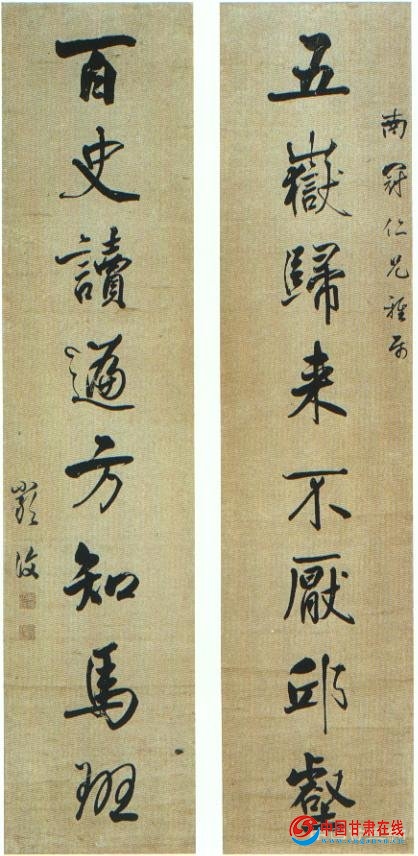 南冠仁兄雅属
五嶽歸来不厭邱壑
百史讀遍方知馬班
中国甘肃在线